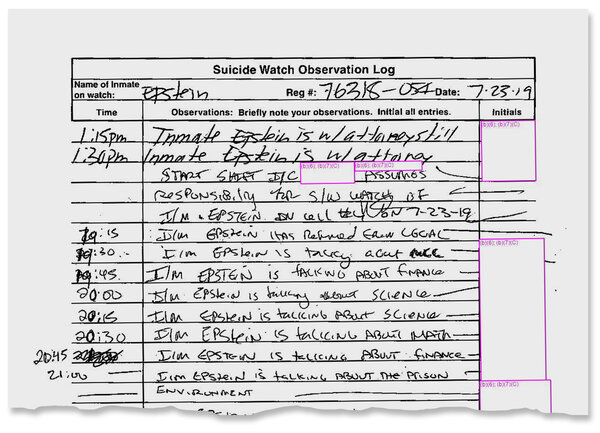 Suicide Watch Observation Log
Name of Inmate on watch: Epstein Reg #: 76318-054 Date: 7-23-19
Time Observations: Briefly note your observations. Initial all entries. Initials
1:15pm Inmate Epstein is w/attorney still (b)(6); (b)(7)(C)
1:30pm Inmate Epstein is w/attorney
START SHIFT I/C (b)(6); (b)(7)(C) (b)(6); (b)(7)(C) ASSUMES
RESPONSIBILITY FOR S/W WATCH OF
I/M EPSTEIN IN CELL ON 7-23-19
19:15 I/M EPSTEIN HAS RETURNED FROM LEGAL (b)(6); (b)(7)(C)
19:30 I/M EPSTEIN IS TALKING ABOUT
19:45 I/M EPSTEIN IS TALKING ABOUT FINANCE
20:00 I/M EPSTEIN IS TALKING ABOUT SCIENCE
20:15 I/M EPSTEIN IS TALKING ABOUT SCIENCE
20:30 I/M EPSTEIN IS TALKING ABOUT MATH
20:45 I/M EPSTEIN IS TALKING ABOUT FINANCE
21:00 I/M EPSTEIN IS TALKING ABOUT THE PRISON (b)(6); (b)(7)(C)
ENVIRONMENT